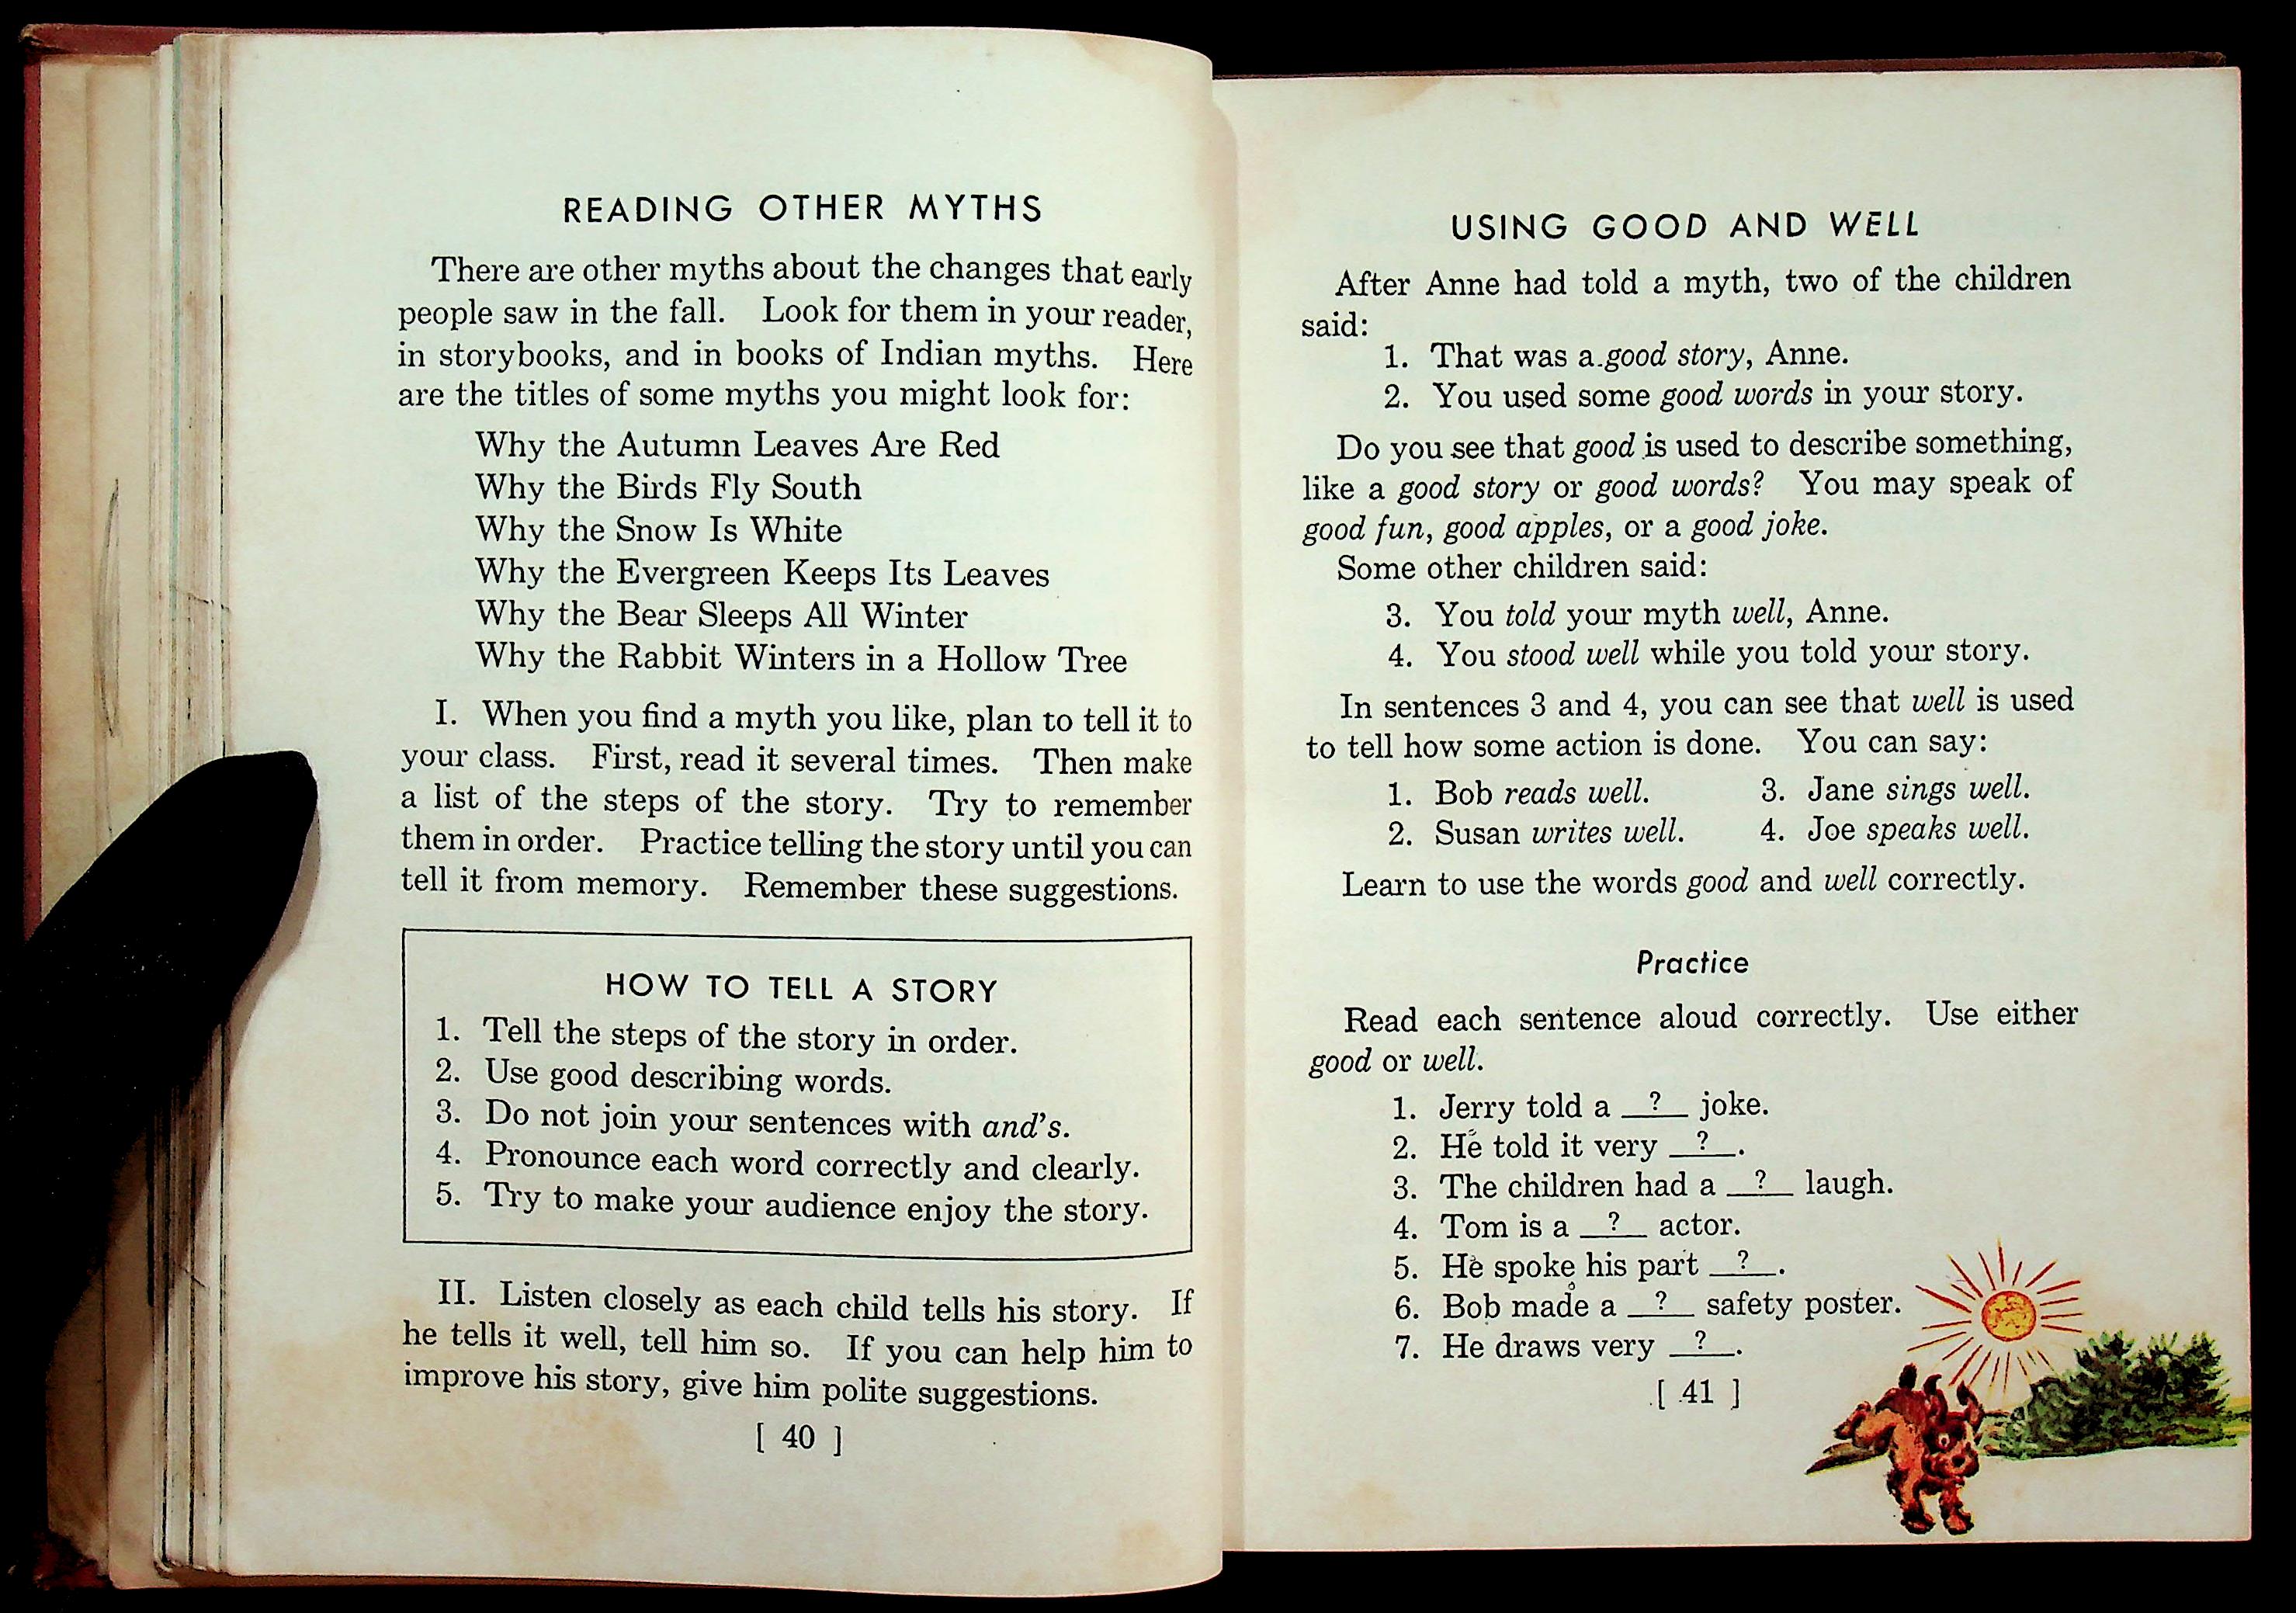 READING OTHER MYTHS
There are other myths about the changes that early
people saw in the fall. Look for them in your reader,
in storybooks, and in books of Indian myths. Here
are the titles of some myths you might look for:
Why the Autumn Leaves Are Red
Why the Birds Fly South
Why the Snow Is White
Why the Evergreen Keeps Its Leaves
Why the Bear Sleeps All Winter
Why the Rabbit Winters in a Hollow Tree
I. When you find a myth you like, plan to tell it to
your class. First, read it several times. Then make
a list of the steps of the story. Try to remember
them in order. Practice telling the story until you can
tell it from memory. Remember these suggestions.
HOW TO TELL A STORY
1. Tell the steps of the story in order.
2. Use good describing words.
3. Do not join your sentences with and's.
4. Pronounce each word correctly and clearly.
5. Try to make your audience enjoy the story.
II. Listen closely as each child tells his story. If
he tells it well, tell him so. If you can help him to
improve his story, give him polite suggestions.
[ 40 ]
USING GOOD AND WELL
After Anne had told a myth, two of the children
said:
1. That was a good story, Anne.
2. You used some good words in your story.
Do you see that good is used to describe something,
like a good story or good words? You may speak of
good fun, good apples, or a good joke.
Some other children said:
3. You told your myth well, Anne.
4. You stood well while you told your story.
In sentences 3 and 4, you can see that well is used
to tell how some action is done. You can say:
1. Bob reads well. 3. Jane sings well.
2. Susan writes well. 4. Joe speaks well.
Learn to use the words good and well correctly.
Practice
Read each sentence aloud correctly. Use either
good or well.
1. Jerry told a __?__ joke.
2. He told it very __?__.
3. The children had a __?__ laugh.
4. Tom is a __?__ actor.
5. He spoke his part __?__.
6. Bob made a __?__ safety poster.
7. He draws very __?__.
[ 41 ]